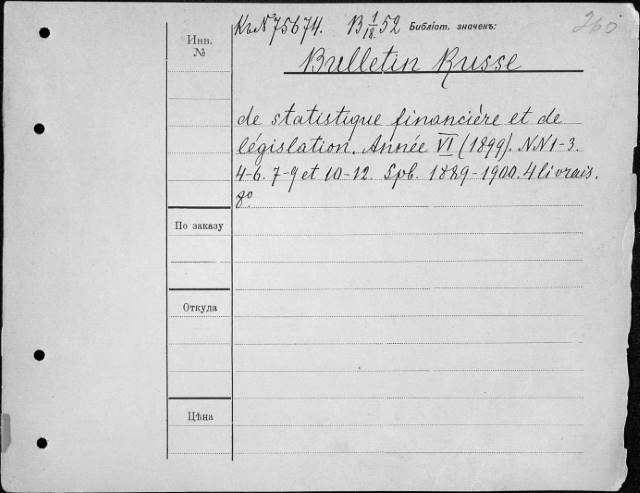 Къ № 75674. B 1/18. 52 Библіот. значекъ: 260
Инв.
№
Bulletin Russe
de statistique financière et de
législation. Année VI (1899). NN 1-3.
4-6. 7-9 et 10-12. Spb. 1889-1900. 4 livrais.
8º
По заказу
Откуда
Цѣна